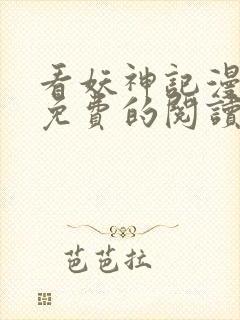 看妖神記漫
免費的閱讀
芭芭拉